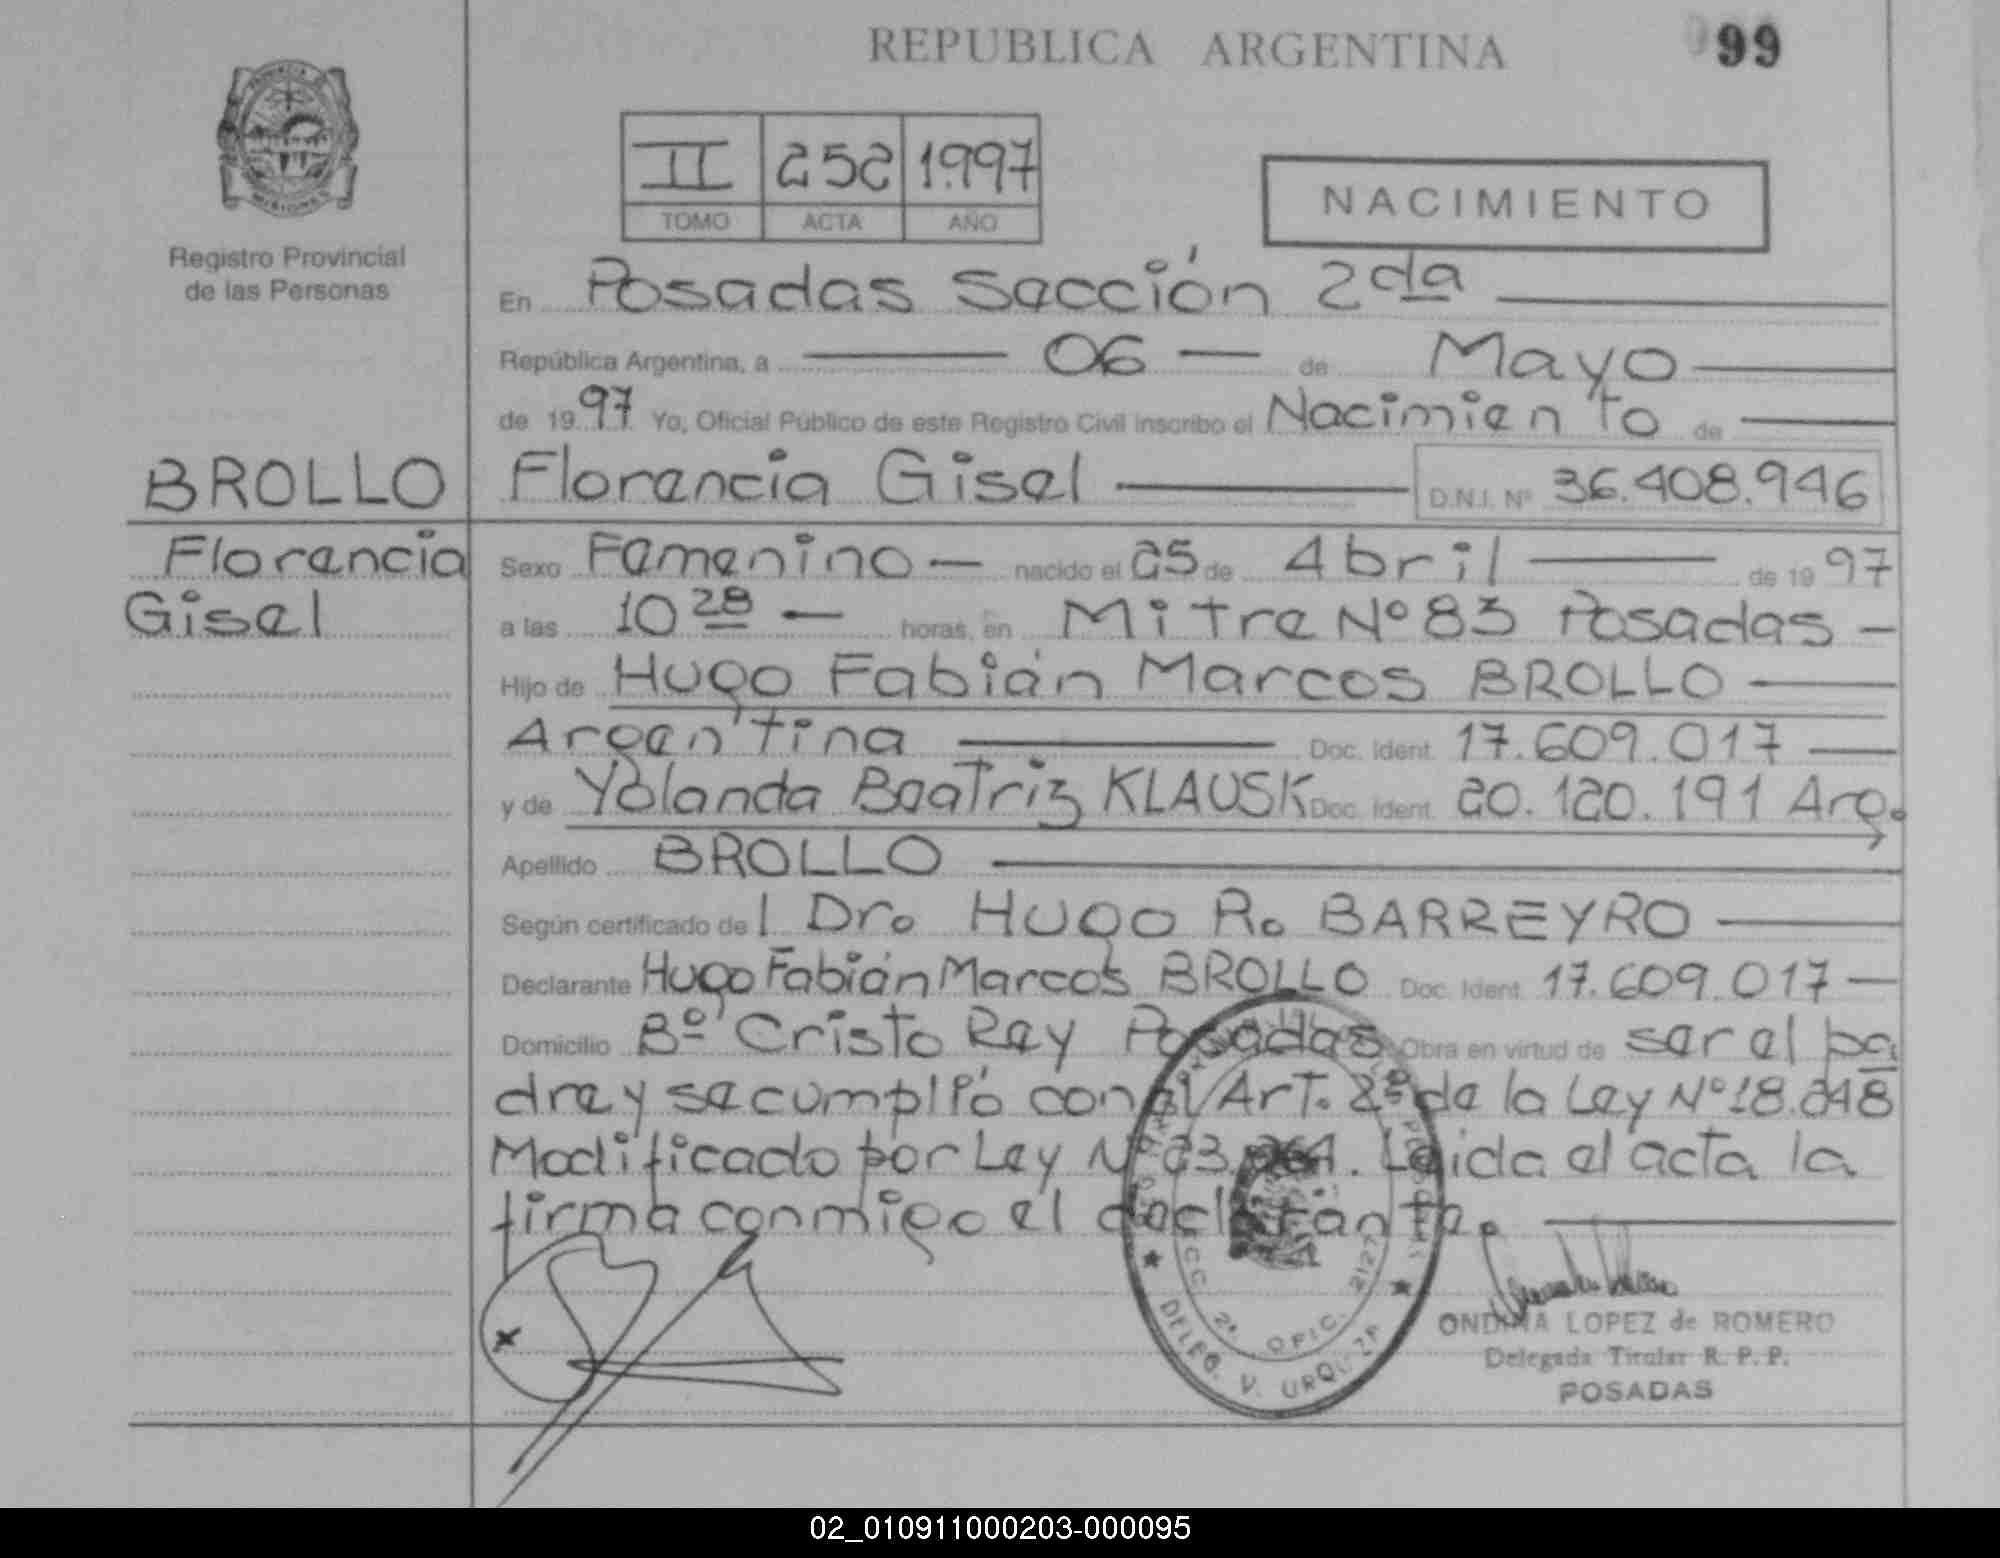 REPUBLICA ARGENTINA
99
PROVINCIA DE
MISIONES
Registro Provincial
de las Personas
II 252 1.997
TOMO ACTA AÑO
NACIMIENTO
En Posadas Sección 2da
República Argentina, a 06 de Mayo
de 1997 Yo, Oficial Público de este Registro Civil inscribo el Nacimiento de
BROLLO Florencia Gisel D.N.I. Nº 36.408.946
Florencia Sexo Femenino nacido el 25 de Abril de 1997
Gisel a las 10 28 horas, en Mitre Nº 83 Posadas
Hijo de Hugo Fabián Marcos BROLLO
Argentina Doc. Ident. 17.609.017
y de Yolanda Beatriz KLAUSK Doc. Ident. 20.120.191 Arg.
Apellido BROLLO
Según certificado del Dr. Hugo R. BARREYRO
Declarante Hugo Fabián Marcos BROLLO Doc. Ident. 17.609.017
Domicilio Bº Cristo Rey Posadas Obra en virtud de ser el pa
dre y se cumplió con el Art. 2º de la Ley Nº 18.248
Modificado por Ley Nº 23.264. Leida el acta la
firma conmigo el declarante.
SECC. 2ª OFIC. 2127
DELEG. V. URQUIZA
ONDINA LOPEZ de ROMERO
Delegada Titular R. P. P.
POSADAS
02_010911000203-000095